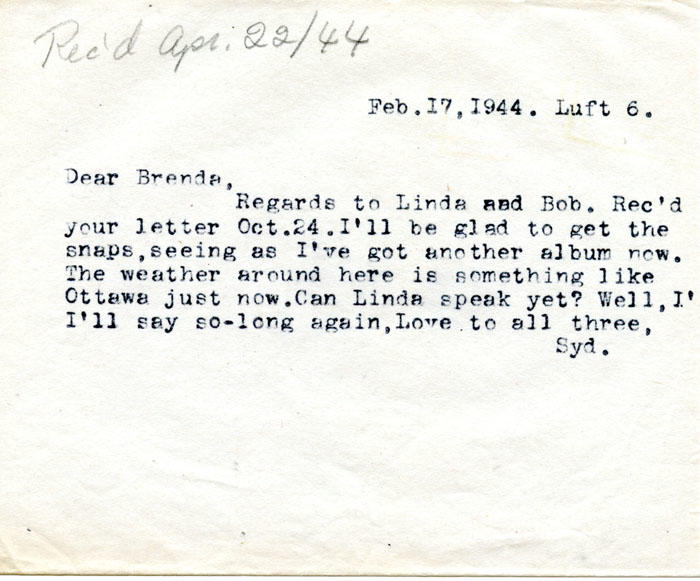 Rec'd Apr. 22/44
Feb.17,1944. Luft 6.
Dear Brenda,
Regards to Linda and Bob. Rec'd
your letter Oct.24.I'll be glad to get the
snaps,seeing as I've got another album now.
The weather around here is something like
Ottawa just now.Can Linda speak yet? Well,I'
I'll say so-long again,Love to all three,
Syd.